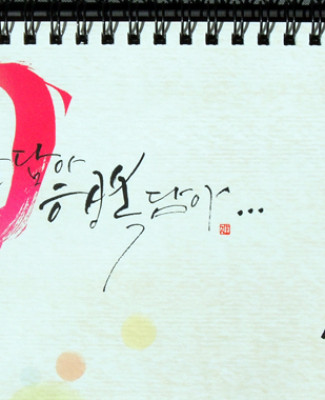 담아
행복 담아...